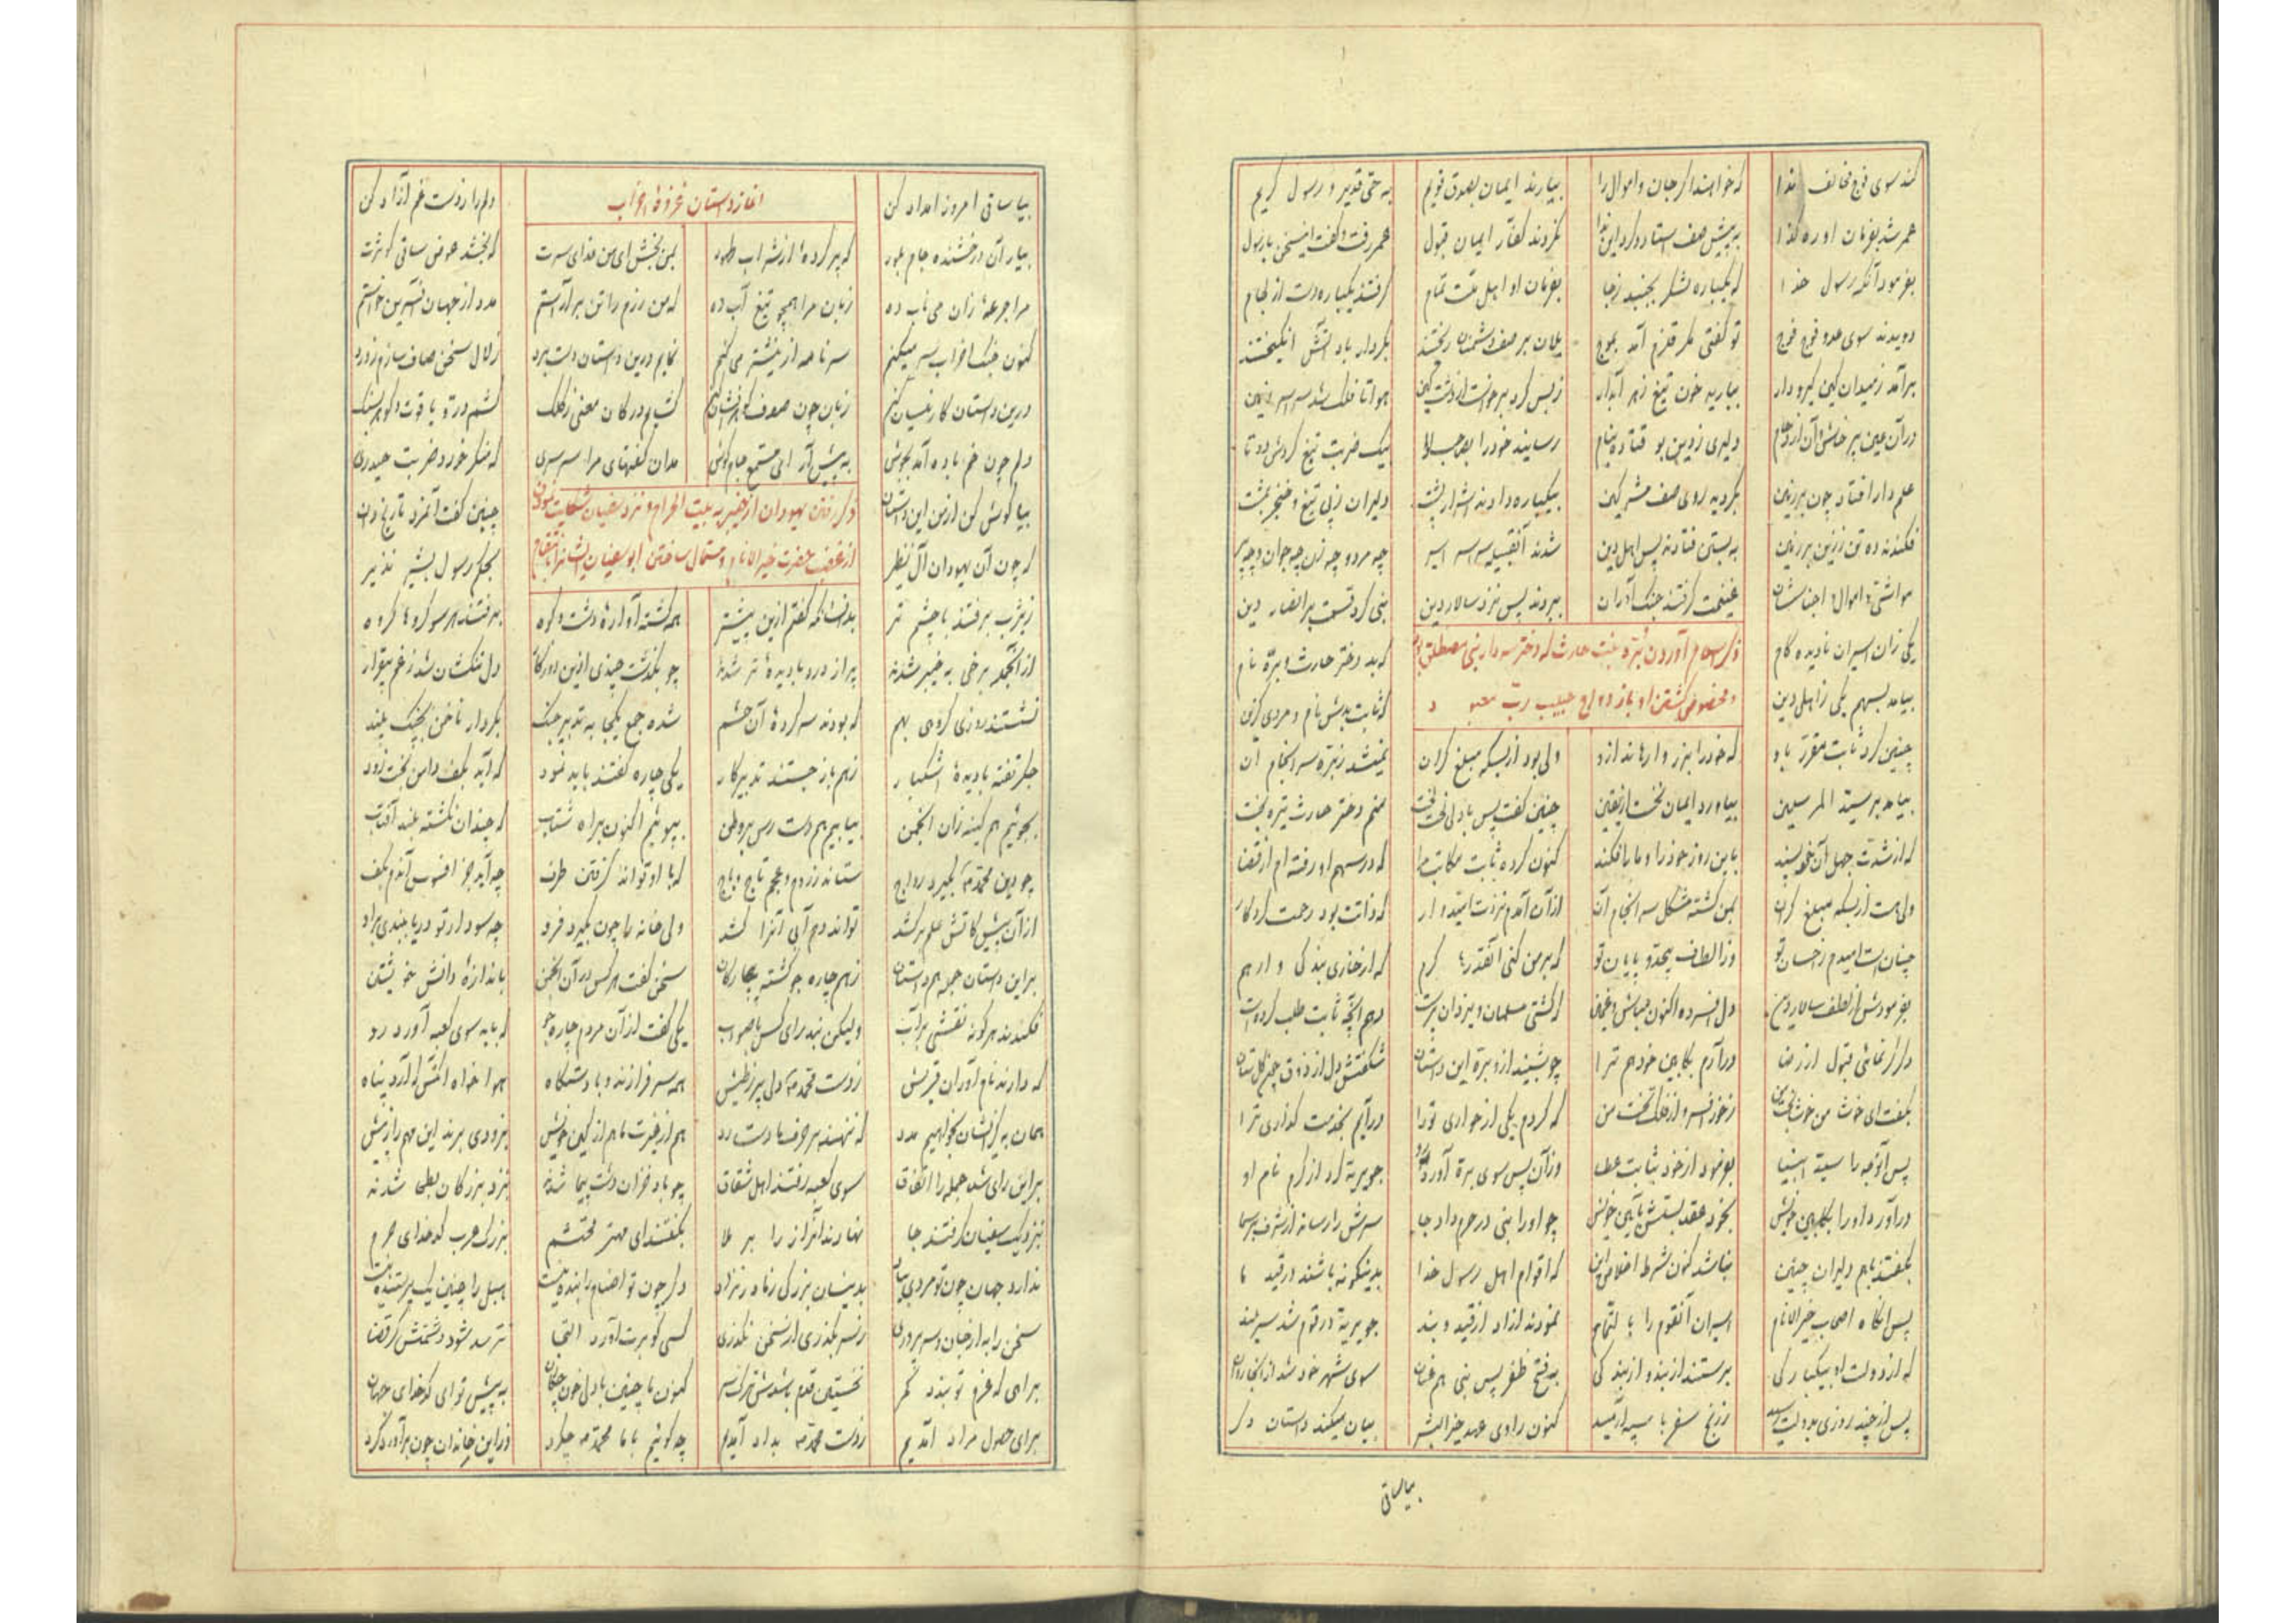 کند سوی فوج مخالف ندا که خواهند اگر جان و اموال را بیارند ایمان بصدق قویم به حق قدیر و رسول کریم
عمر شد بفرمان او ره گذا به پیش صف استاد و کرد این ندا نکردند کفار ایمان قبول عمر رفت و گفت این سخن با رسول
بفرمود آنگه رسول خدا که یکباره لشکر بجنبد ز جا بفرمان او اهل ملت تمام گرفتند یکباره دست از لجام
دویدند سوی عدو فوج فوج تو گفتی مگر قلزم آمد بموج یلان بر صف دشمنان ریختند بکردار باد آتش انگیختند
برآمد ز میدان کین گیر و دار ببارید خون تیغ زهر آبدار ز بس گرد برخاست از دشت کین هوا تا فلک شد سراسر زمین
در آن عین پرخاش و آن ازدحام دلیری رسانید خود را بیک ضربت تیغ کردش دو تا
علم دار افتاد چون بر زمین بگردید روی صف مشرکین بیکباره دادند پشت دلیران ز پی تیغ و خنجر بمشت
فکندند ده تن زین بر زمین به بستن فتادند پس اهل دین شدند آنقبیله سراسر اسیر چه مرد و چه زن چه جوان و چه پیر
مواشی و اموال و اجناسشان غنیمت گرفتند جنگ آوران ببردند پس نزد سالار دین نبی کرد قسمت بر انصار دین
ذکر اسلام آوردن بره بنت حارث که دختر سردار بنی مصطلق بود
و مخصوص گشتن او بازدواج حبیب رب معبود
یکی زان اسیران نادیده کام که بد دختر حارث و بره نام
بیامد بسهم یکی ز اهل دین که ثابت بدش نام و مردی گزین
چنین کرد ثابت مقرر باو که خود را بزر وارهاند ازو ولی بود از بسکه مبلغ گران نمیشد ز بره سرانجام آن
بیامد بر سید المرسلین بیاورد ایمان نخست از یقین چنین گفت پس با دلی لخت لخت منم دختر حارث تیره بخت
که از شدت جهل آن خودپسند باین روز خود را و ما را فکند کنون کرده ثابت مکاتب مرا که در سهم او رفته ام از قضا
ولی هست از بسکه مبلغ گران بمن گشته مشکل سرانجام آن از آن آمدم نزدت امیدوار که ذاتت بود رحمت کردگار
چنان است امیدم ز احسان تو وز الطاف بیحد و پایان تو که بر من کنی آنقدرها کرم که از خواری بندگی وارهم
بفرمودش از لطف سالار دین دل افسرده اکنون مباش و غمین که گشتی مسلمان و یزدان پرست دهم آنچه ثابت طلب کرده است
دگر گر نمائی قبول از رضا درآرم بکابین خودهم ترا چو بشنید ازو بره این داستان شکفتش دل از ذوق چون گلستان
بگفت ای خوشا من خوشا ز خور افسر و از فلک تخت من که کردم یکی از جواری ترا درآیم بخدمت گذاری ترا
پس آنوجه را سید انبیا بفرمود از خود بثابت عطا وزآن پس سوی بره آورد رو جویریه کرد از کرم نام او
درآورد او را بکابین خویش بخود عقد بستش بآیین خویش چو او را نبی در حرم داد جا سرش را رسانید از شرف بر سما
بگفتند باهم دلیران چنین نباشد کنون شرط اخلاص این که اقوام اهل رسول خدا بدینگونه باشند در قید ما
پس آنگاه اصحاب خیر الانام اسیران آنقوم را بالتمام نمودند آزاد از قید و بند جویریه در قوم شد سربلند
که از دولت او بیکبارگی برستند از بند و از بندگی به فتح و ظفر پس نبی هم عنان سوی شهر خود شد از آنجا روان
پس از چند روزی بدولت رسید ز رنج سفر با سپه آرمید کنون راوی عهد خیر البشر بیان میکند داستان دگر
بیاساقی
بیا ساقی امروز امداد کن دلم را ز دست غم آزاد کن
آغاز داستان غزوهٔ احزاب
بیار آن درخشنده جام بلور که پر کردهٔ از شراب طهور بمن بخش ای من فدای سرت که بخشد عوض ساقی کوثرت
مرا جرعهٔ زان می ناب ده زبان مرا همچو تیغ آب ده که من رزم را تن برآراستم مدد از جهان آفرین خواستم
کنون جنگ احزاب سر میکنم سر نامه از می کنم نمایم درین داستان دست برد زلال سخن صاف سازم ز درد
درین داستان کار نیسان کنم زبان چون صدف گوهر افشان کنم گشایم در کان معنی ز کلک کشم در و یاقوت و گوهر بسلک
دلم چون خم باده آمد بجوش به پیش آر ای مستمع جام گوش مدان گفتهای مرا سرسری که منکر خورد ضربت حیدری
بیا گوش کن از من این داستان چنین گفت
ذکر رفتن یهودان از خیبر به بیت الحرام و نزد سفیان شکایت نمودن
از غضب حضرت خیر الانام و مستمال ساختن ابو سفیان ایشانرا بانتقام
که چون آن یهودان آل نظیر بحکم رسول بشیر نذیر
ز یثرب برفتند با چشم تر بدانسانکه گفتم ازین پیشتر همه گشته آوارهٔ دشت و کوه برفتند هر سو گروها گروه
از آنجمله برخی به خیبر شدند پر از درد با دیدهٔ تر شدند چو بگذشت چندی ازین روزگار دل تنگشان شد ز غم بیقرار
نشستند روزی گروهی بهم که بودند سرکردهٔ آن حشم شده جمع یکجا به تدبیر جنگ بکردار ناخن
جگر تفته با دیدهٔ اشکبار ز هم باز جستند تدبیر کار یکی چاره گفتند باید نمود که آید بکف دامن بخت زود
بجوئیم هم کینه زان انجمن بیابیم هم دسترس بر وطن بپوئیم اکنون براه شتاب که چندان نگشته بلند آفتاب
چو دین محمد بگیرد رواج ستاند ز روم و عجم تاج و باج که با او تواند گرفتن طرف چه آید جز افسوس آندم بکف
از آن پیش کآتش علم برکشد تواند دم آبی آنرا کشد ولی خانه را چون بگیرد فرو چه سود ار تو دریا ببندی برو
براین داستان جمله همداستان ز هم چاره جو گشته بیچارگان سخن گفت هر کس در آن انجمن باندازهٔ دانش خویشتن
فکندند هر گونه نقشی بر آب ولیکن نبد رای کس با صواب یکی گفت از آن مردم چاره جو که باید سوی کعبه آورد رو
که دارند نام آوران قریش ز دست محمد دلی پر ز طیش همه سرفرازند و با دستگاه
همان به کزیشان بجوئیم مدد که ننهند بر حرف ما دست رد هم از غیرت ما هم از کین خویش بزودی برند این مهم را ز پیش
براین رای شد جمله را اتفاق سوی کعبه رفتند اهل شقاق چو باد خزان دشت پیما شدند بنزد بزرگان بطحا شدند
بنزدیک سفیان گرفتند جا نهادند آن راز را بر ملا بگفتند ای مهتر محتشم بزرگ عرب کدخدای حرم
ندارد جهان چون تو مردی بیاد بدینسان بزرگی ز مادر نزاد دگر چون تو اصنام را بنده نیست هبل را چنین یک پرستنده نیست
سخن را به از جان و سر پروری ز سر بگذری از سخن نگذری کسی کو برت آورد التجا نترسد شود دشمنش گر قضا
براهی که عزم تو بندد کمر نخستین قدم باشدش ترک سر کنون ما چنین با دل خون چکان به پیش تو ای کدخدای جهان
برای حصول مراد آمدیم ز دست محمد بداد آمدیم چه گوئیم با ما محمد چه کرد وزاین خاندان چون برآورد گرد